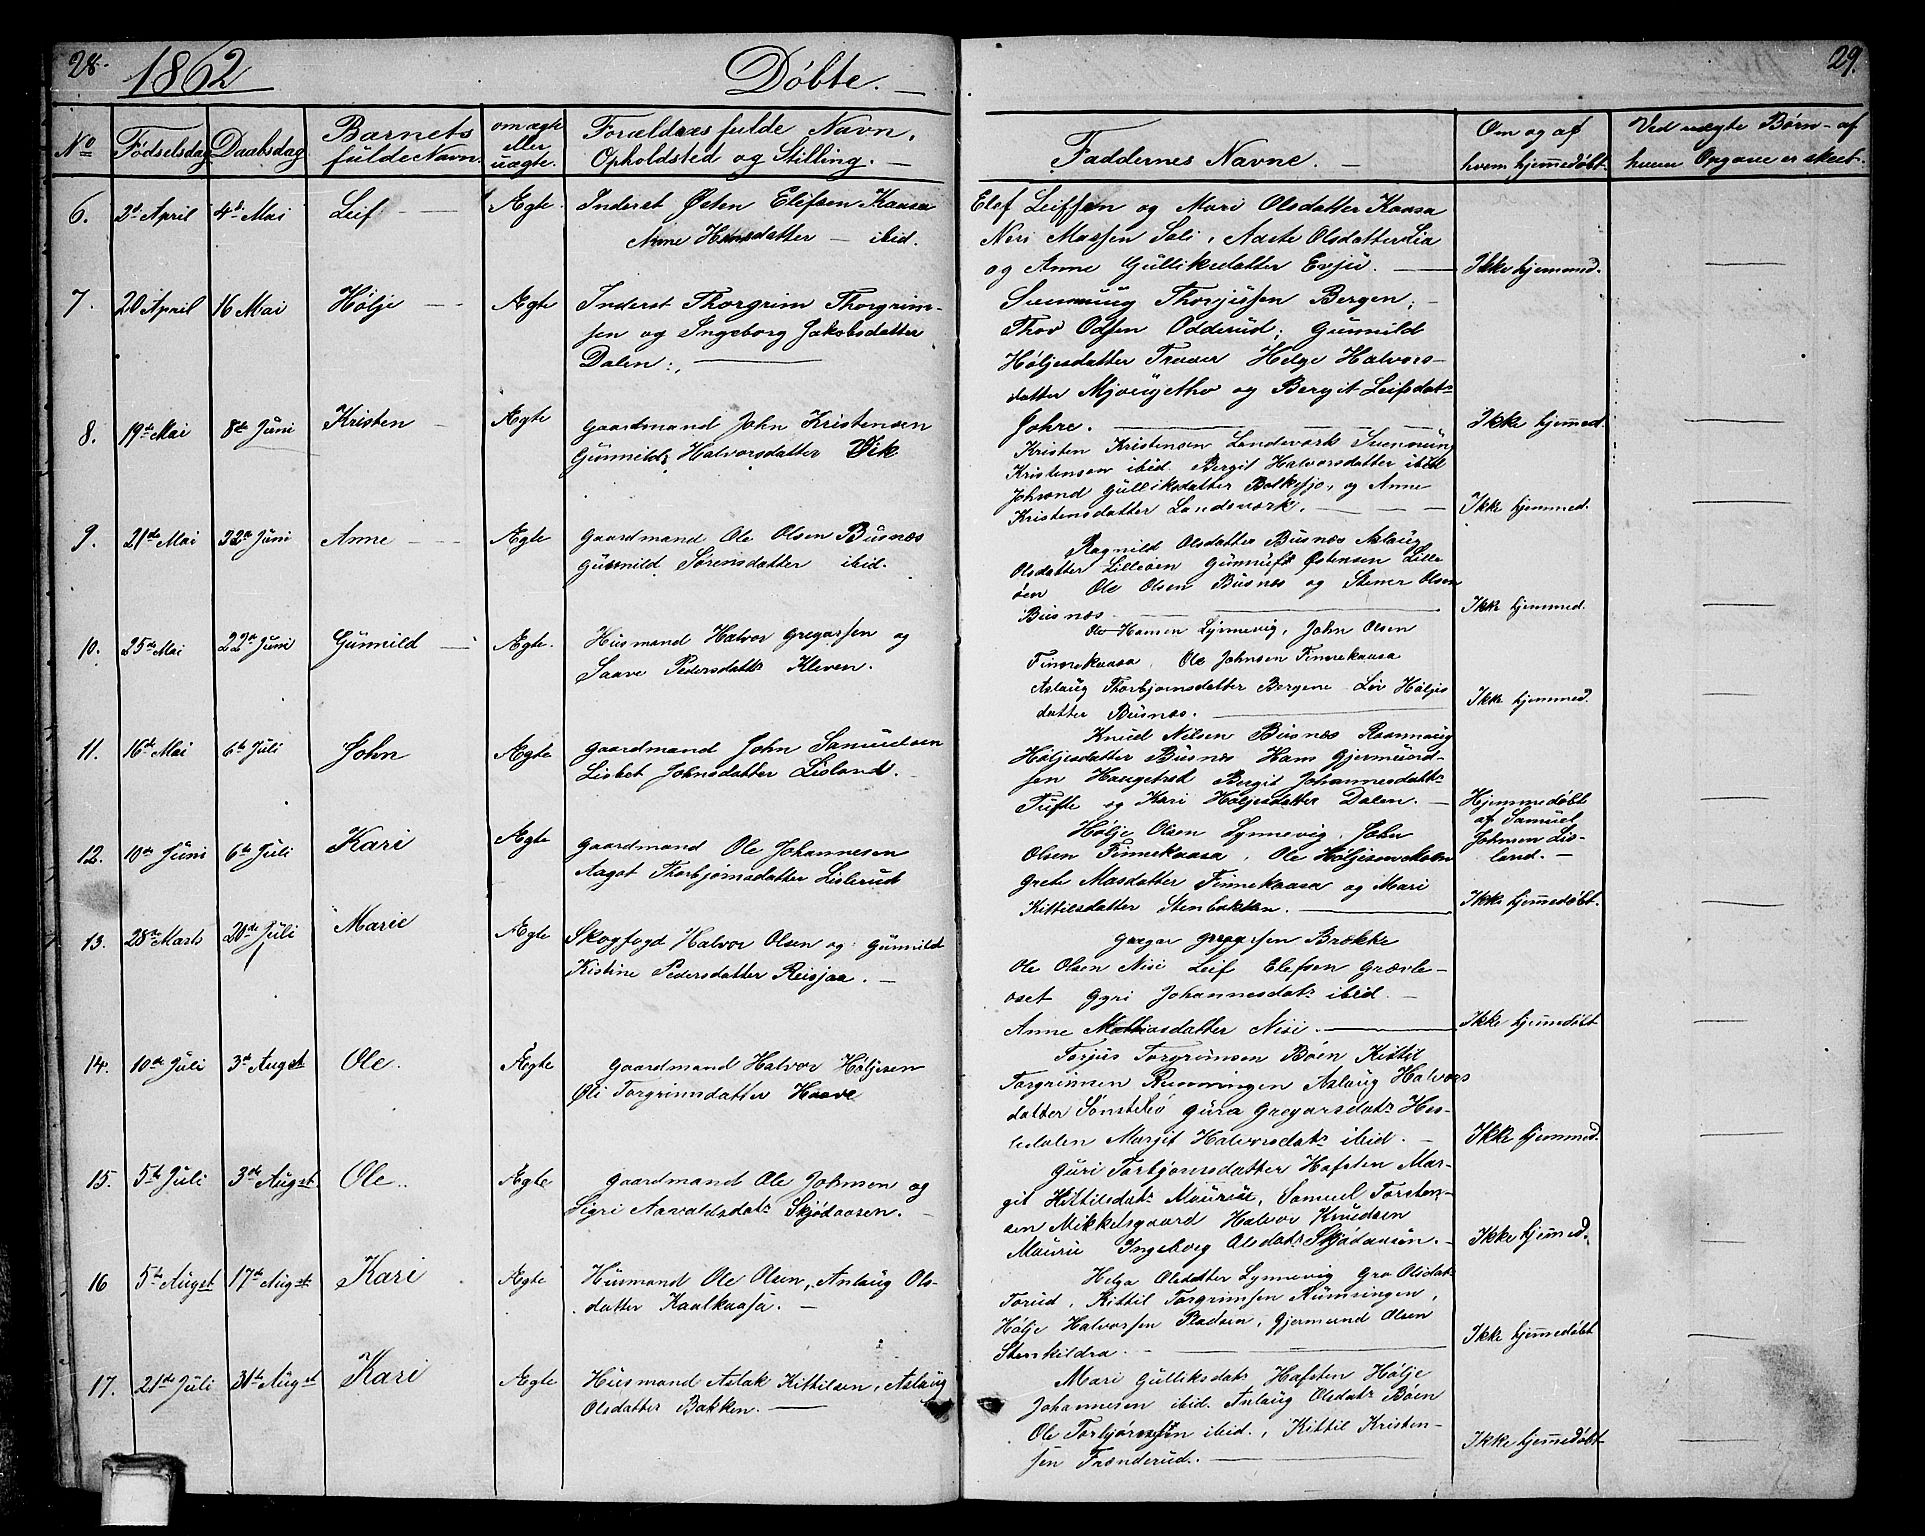 28. 1862 Døbte. 29.
No Fødselsdag Daabsdag Barnets fulde Navn. om ægte eller uægte. Forældres fulde Navn, Opholdsted og Stilling. Faddernes Navne. Om og af hvem hjemmedøbt Ved uægte Børn af hvem Opgave er skeet.
6. 2d April 4de Mai Leif Ægte. Inderst Østen Elefsen Kaasa
Anne Hansdatter ibid.
Elef Leifsen og Mari Olsdatter Kaasa
Neri Massen Soli, Aaste Olsdatter Lia
og Anne Gulliksdatter Evju.
Ikke hjemmed.
7. 20 April 16 Mai Hølje Ægte Inderst Thorgrim Thorgrim-
sen og Ingeborg Jakobsdatter
Dalen.
Sunnung Thorjussen Bergen,
Thov Odsen Odderud, Gunnild
Høljesdatter Traaer Helge Halvors-
datter Mjougetho og Bergit Leifsdatr
Johre.
Ikke hjemmed.
8. 19de Mai 8de Juni Kristen Ægte Gaardmand John Kristensen
Gunnild Halvorsdatter Vik
Kristen Kristensen Landsværk Sunnung
Kristensen ibid. Bergit Halvorsdatter ibid
Johrond Gulliksdatter Bolkesjo, og Anne
Kristensdatter Landsværk.
Ikke hjemmed.
9. 21de Mai 22de Juni Anne Ægte Gaardmand Ole Olsen Busnæs
Gunnild Sørensdatter ibid.
Ragnild Olsdatter Busnæs Aslaug
Olsdatter Lilleøen Gunnulf Østensen Lille
øen Ole Olsen Busnæs og Stener Olsen
Busnæs
Ikke hjemmed.
10. 25de Mai 22de Juni Gunnild Ægte. Husmand Halvor Gregarsen og
Saave Pedersdatter Kleven.
Ole Hansen Lynnevig, John Olsen
Finnekaasa, Ole Johnsen Finnekaasa
Aslaug Thorbjornsdatter Bergene Liv Høljes
datter Busnæs.
Ikke hjemmed.
11. 16de Mai 6te Juli John Ægte Gaardmand John Samuelsen
Lisbet Johnsdatter Lisland.
Knud Nilsen Busnæs Raannaug
Høljesdatter Busnæs Hans Gjermund-
sen Haugetred Bergit Johannesdatr
Tufte og Kari Høljesdatter Dalen.
Hjemmedøbt
af Samuel
Johnsen Lis-
land.
12. 10de Juni 6te Juli Kari Ægte Gaardmand Ole Johannesen
Aagot Thorbjørnsdatter Lislerud
Hølje Olsen Lynnevig, John
Olsen Finnekaasa, Ole Høljesen Moen
Grete Masdatter Finnekaasa og Mari
Kittilsdatter Stenbakken.
Ikke hjemmedøbt.
13. 28de Marts 20de Juli Marie Ægte Skogfogd Halvor Olsen og Gunnild
Kistine Pedersdatter Reisjaa.
Gregar Gregarsen Brække
Ole Olsen Nisi Leif Elefsen Grævle-
oset Gyri Johannesdatr ibid.
Anne Mathiasdatter Nisi.
Ikke hjemmedøbt
14. 10de Juli 3de Augst Ole. Ægte Gaardmand Halvor Høljesen
Øli Torgrimsdatter Haave
Torjus Torgrimsen Bøen Kittil
Torgrimsen Rumningen Aslaug Halvors
datter Sønstebø Gura Gregarsdatr Hes-
ledalen Margit Halvorsdatr ibid.
Ikke hjemmed.
15. 5te Juli 3de Augst Ole. Ægte Gaardmand Ole Johnsen og
Sigri Aavaldsdatr Skjødaasen.
Guri Torbjornsdatter Hafsten Mar-
git Kittilsdatr Maurue, Samuel Torsten-
sen Mikkelsgaard Halvor Knudsen
Maurue Ingeborg Olsdatr Skjødaasen.
Ikke hjemmed.
16 5te Augst 17de Augst Kari Ægte Husmand Ole Olsen, Aslaug Ols-
datter Kaalkaasa.
Helga Olsdatter Lynnevig Gro Olsdatr
Torud, Kittil Torgrimsen Rumningen,
Hølje Halvorsen Pladsen, Gjermund Olsen
Stenkildra.
Ikke hjemmedøbt
17. 21de Juli 31te Augst Kari Ægte Husmand Aslak Kittilsen, Aslaug
Olsdatter Bakken.
Mari Gulliksdatr Hafsten Hølje
Johannesen ibid. Aslaug Olsdatr Bøen
Ole Torbjørnsen ibid., Kittil Kristen-
sen Trænderud.
Ikke hjemmedøbt